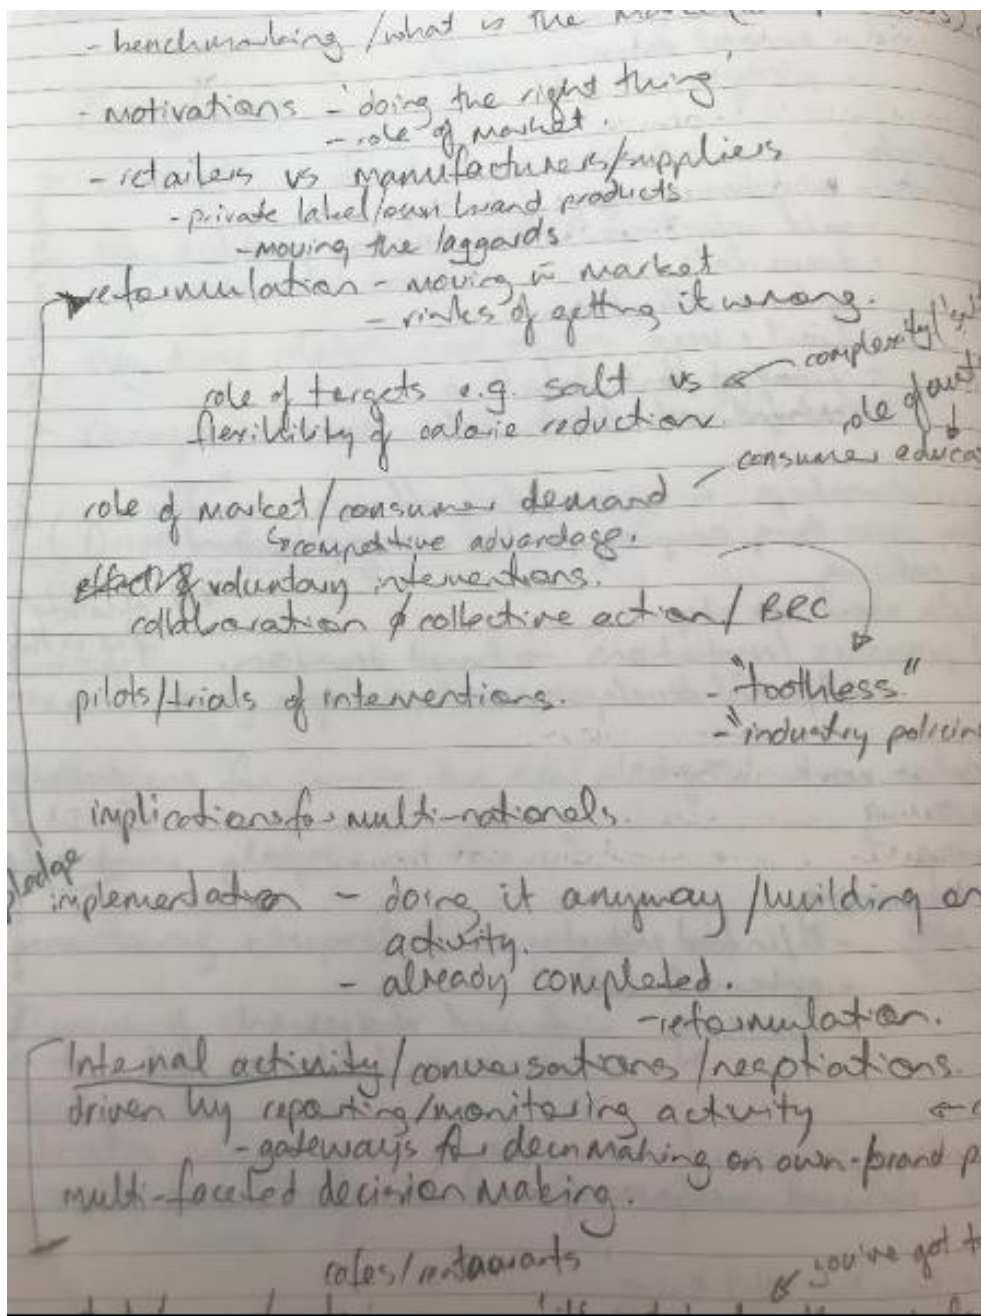 - benchmarking / what is the
- motivations - 'doing the right thing'
- role of market.
- retailers vs manufacturers/suppliers
- private label/own brand products
- moving the laggards
reformulation - moving in market
- risks of getting it wrong.
complexity/
role of targets e.g. salt vs
role of
flexibility of calorie reduction.
consumer educa
role of market/consumer demand
↳ competitive advantage.
voluntary interventions.
collaboration & collective action / BRC
pilots/trials of interventions.
- "toothless"
- "industry policin
implications for multi-nationals.
pledge
implementation - doing it anyway /building on
activity.
- already completed.
- reformulation.
Internal activity/conversations /negotiations.
driven by reporting/monitoring activity ←
- gateways for decn making on own-brand p
multi-faceted decision making.
cafes/restaurants
you've got t